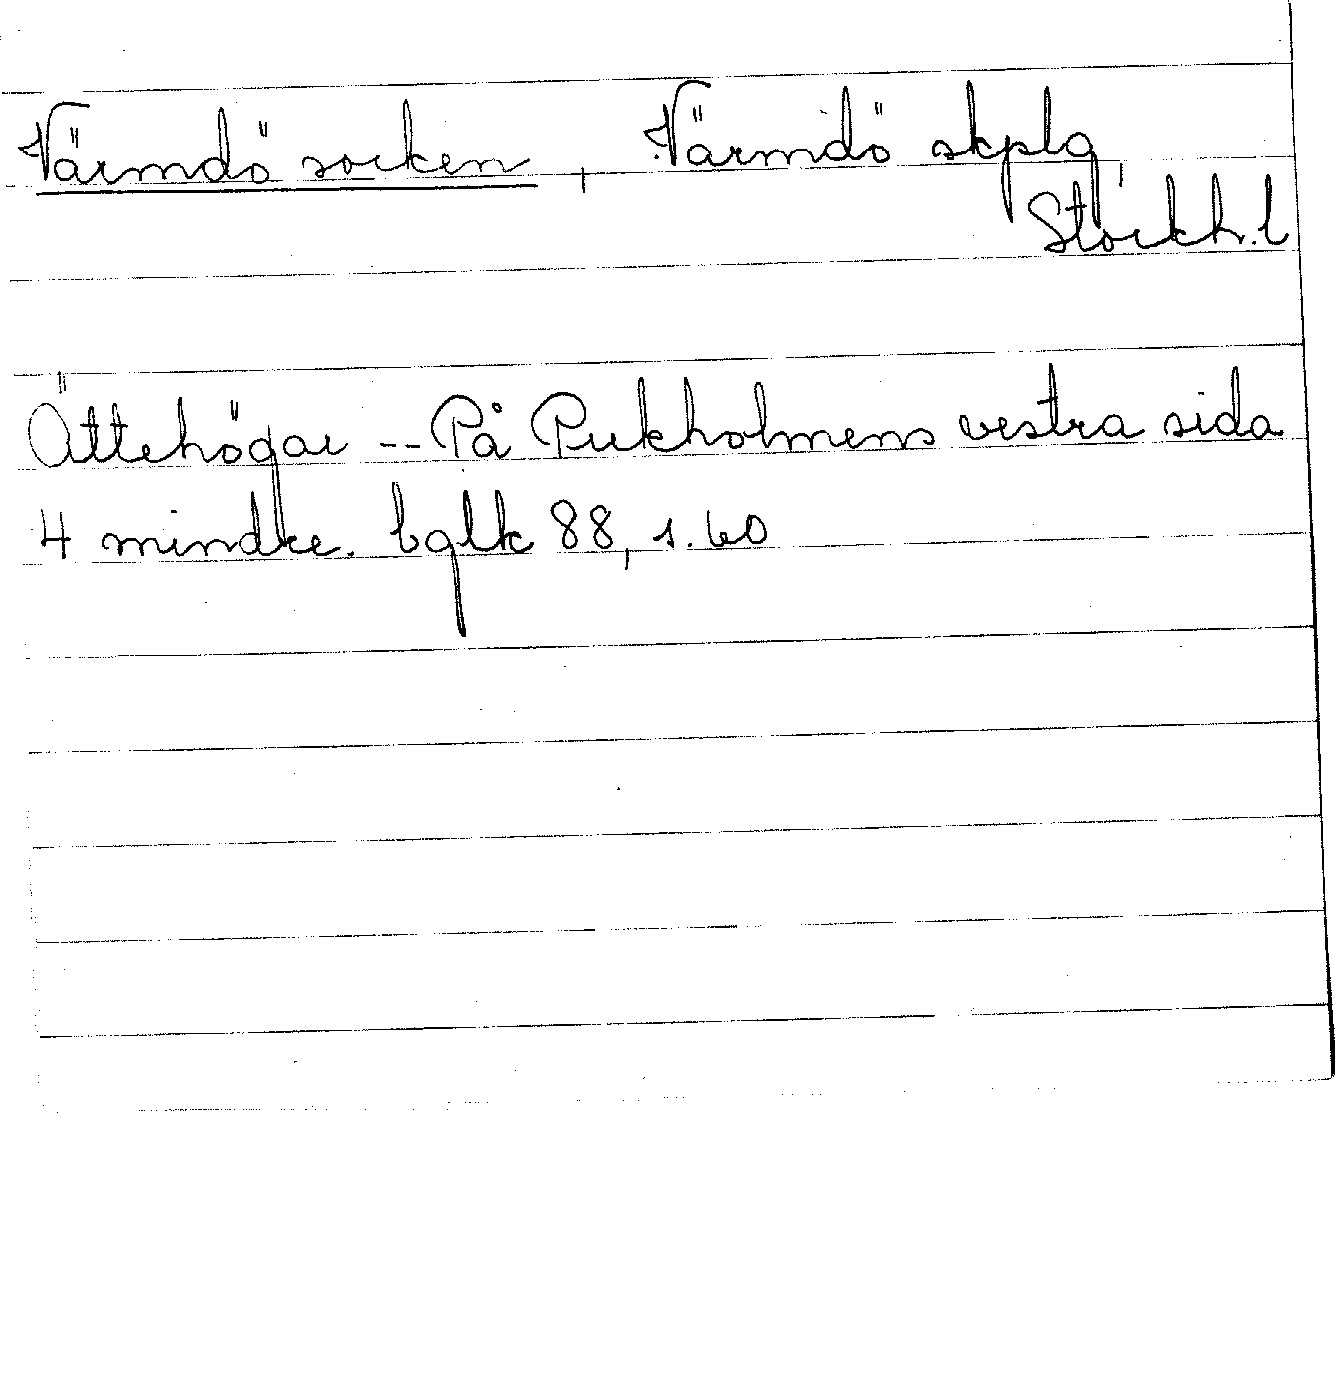 Värmdö socken, Värmdö skplg,
Stockh.l
Ättehögar -- På Pukholmens vestra sida
4 mindre. bglk 88, s. 60